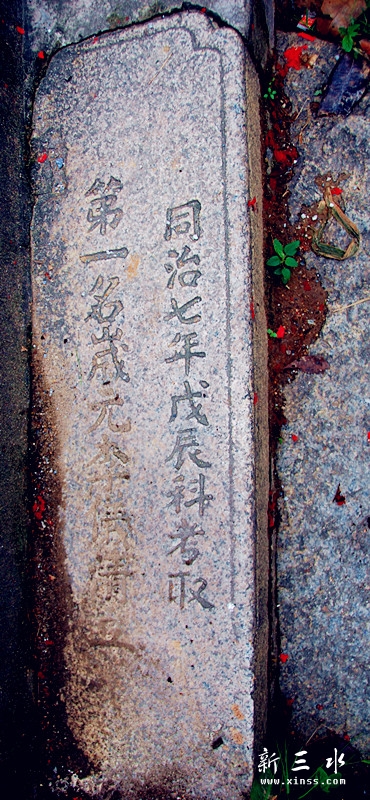 同治七年戊辰科考取
第一名歲元李
新三水
www.xinss.com